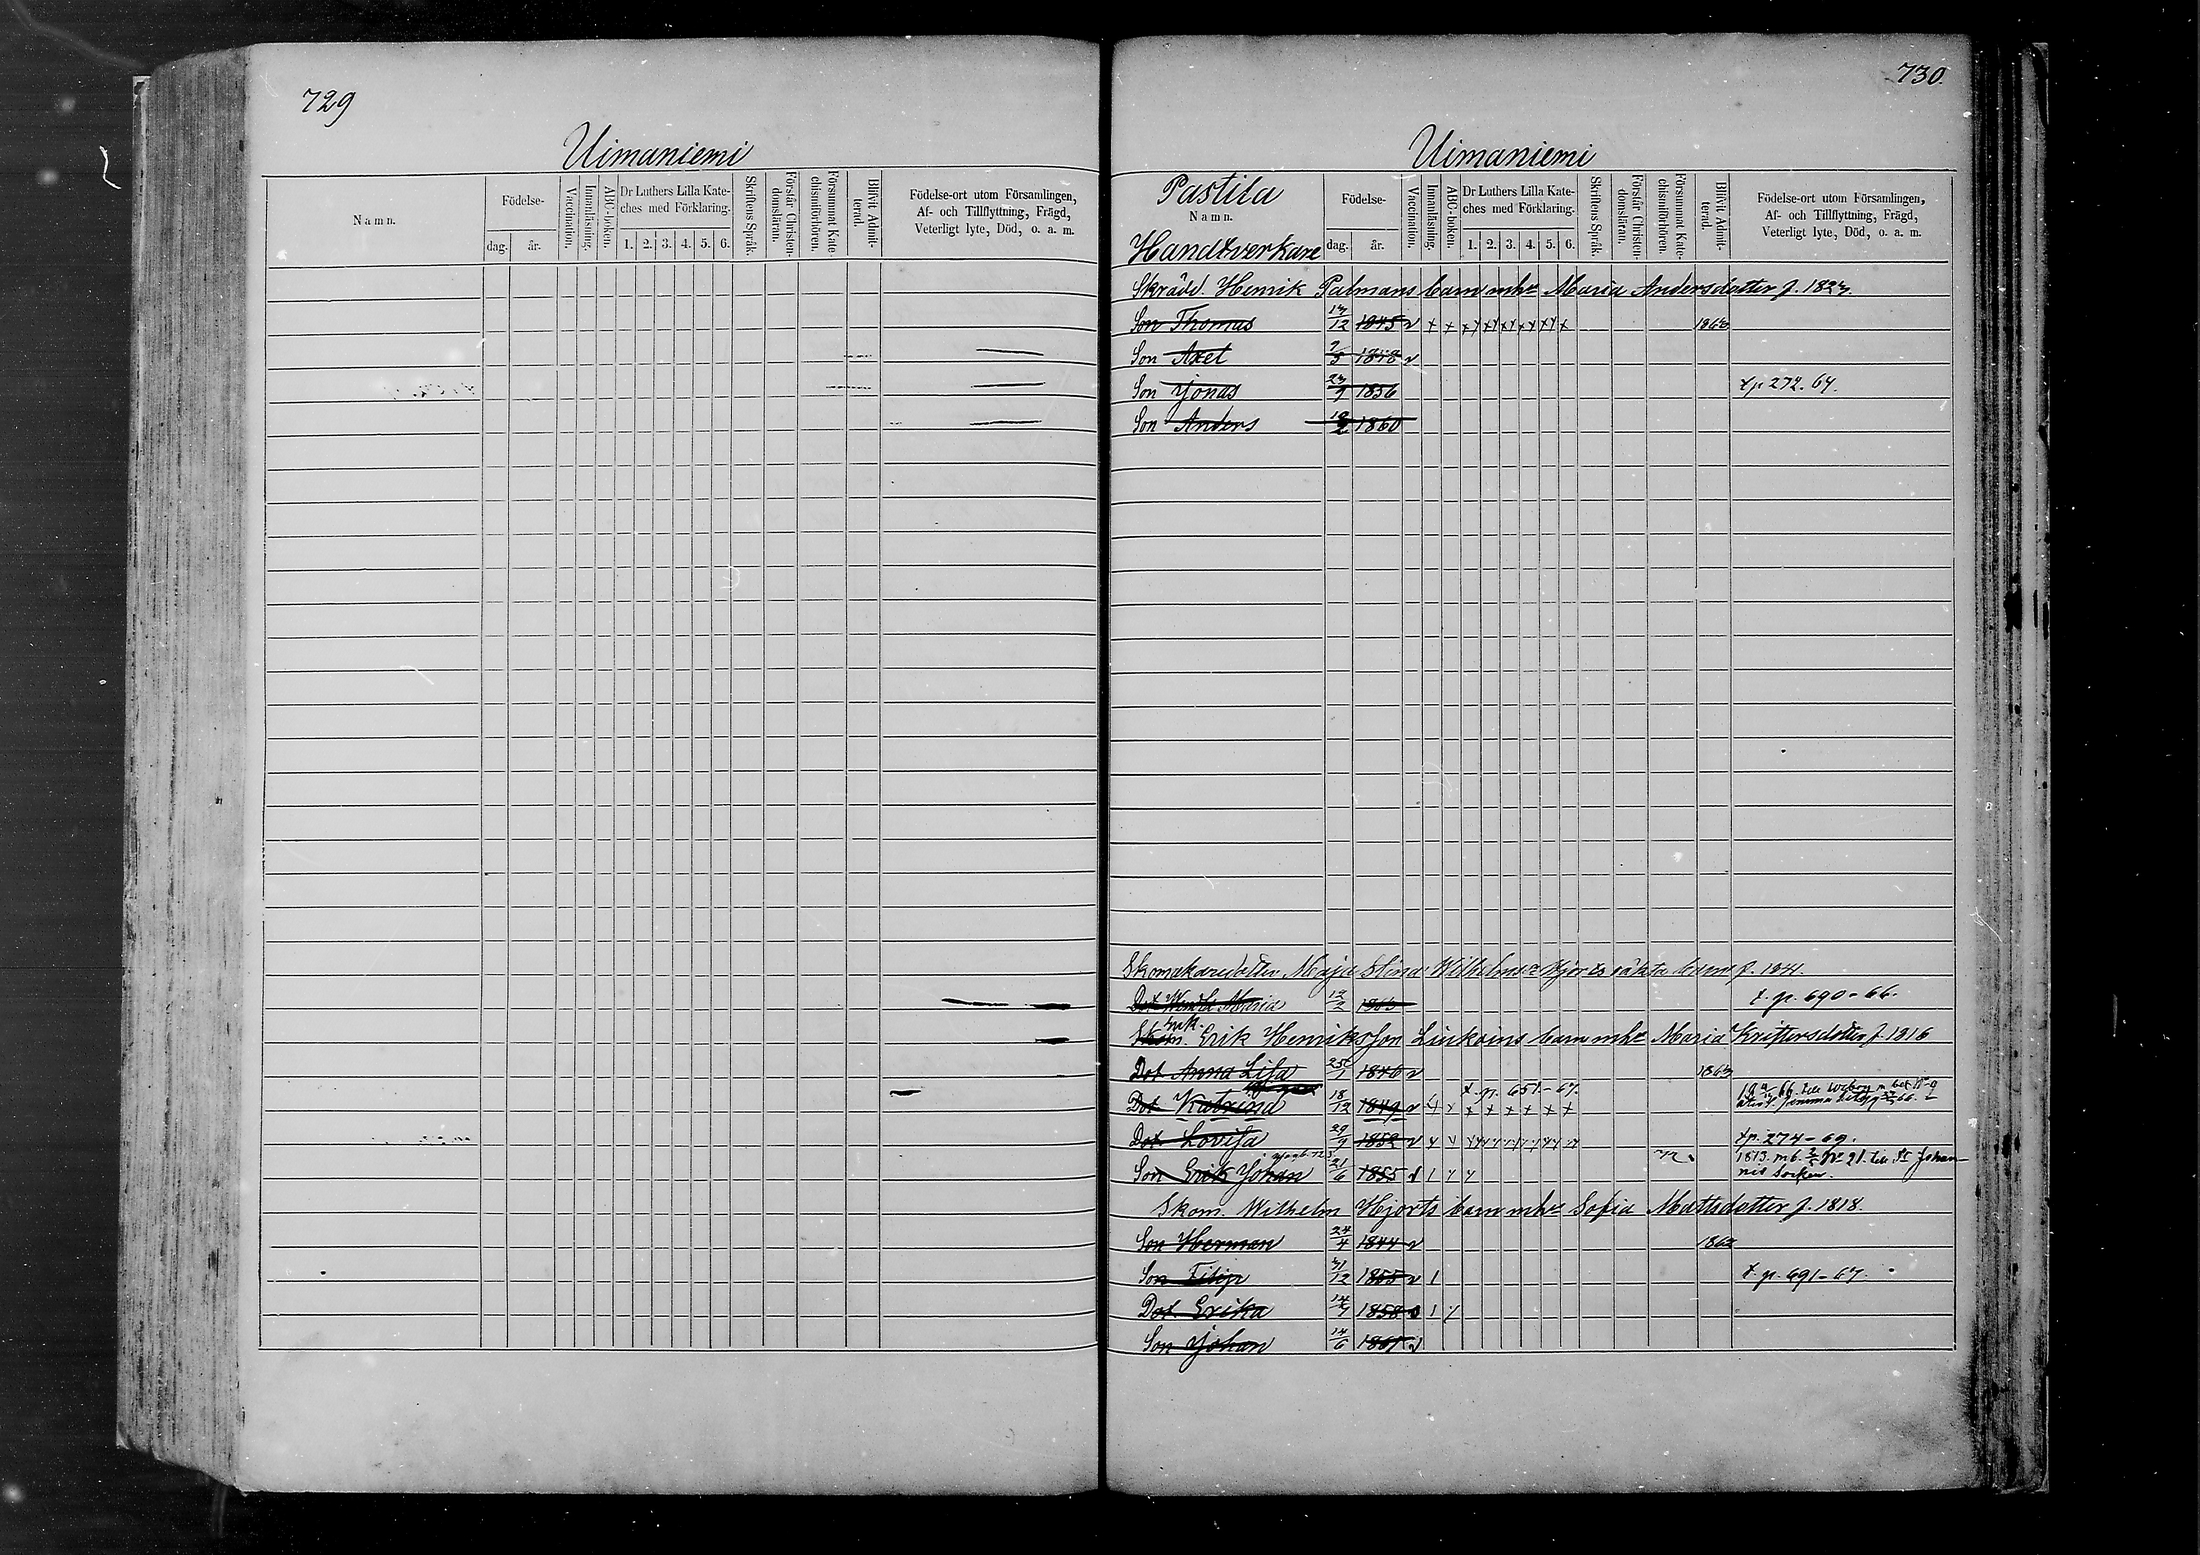 729
Uimaniemi
Namn.
Födelse-
dag.
år.
Vaccination.
Innanläsning.
ABC-boken.
Dr Luthers Lilla Kate-
ches med Förklaring.
1. 2. 3. 4. 5. 6.
Skriftens Språk.
Förstår Christen-
domsläran.
Försummat Kate-
chismiförhören.
Blifvit Admit-
terad.
Födelse-ort utom Församlingen,
Af- och Tillflyttning, Frägd,
Veterligt lyte, Död, o. a. m.
730.
Uimaniemi
Pastila
Namn.
Handtverkare
Födelse-
dag.
år.
Vaccination.
Innanläsning.
ABC-boken.
Dr Luthers Lilla Kate-
ches med Förklaring.
1. 2. 3. 4. 5. 6.
Skriftens Språk.
Förstår Christen-
domsläran.
Försummat Kate-
chismiförhören.
Blifvit Admit-
terad.
Födelse-ort utom Församlingen,
Af- och Tillflyttning, Frägd,
Veterligt lyte, Död, o. a. m.
Skrädd. Henrik Palmans barn mhu Maria Andersdotter f. 1823.
Son Thomas 13/12 1845 v x x xy xy xy xx xy x 1863
Son Axel 7/5 1848 v
Son Jonas 23/9 1856 t.p 272. 64.
Son Anders 1860
Skomakaredotter Maja Stina Wilhelms Hjorts oäkta barn f. 1841.
Dot Wendla Maria 12/2 1863 t. p. 690-66.
Erik Henriksson Linkvins barn mhu Maria Kristersdotter f. 1816
Dot Anna Lisa 25/1 1846 v 1863
t. p. 651-67.
Dot Katrina 18/12 1849 v x x x x x x x
Dot Lovisa 29/9 1852 v t.p. 274-69.
Son Erik Johan 21/6 1855 v 1 y y 1873. m b. 3/5 No 21. till St Johan-
nis Socken.
Skom. Wilhelm Hjorts barn mhu Sofia Mattsdotter f. 1818.
Son Herman 24/4 1844 v 1862
Son Filip 31/12 1855 v 1 t. p. 691-67.
Dot. Erika 14/7 1858 v 1 y
Son Johan 14/6 1861 v